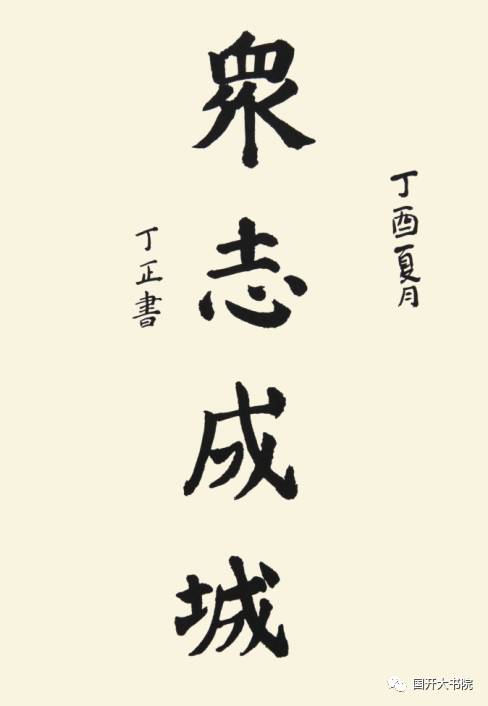 丁酉夏月
眾志成城
丁正書
国开大书院